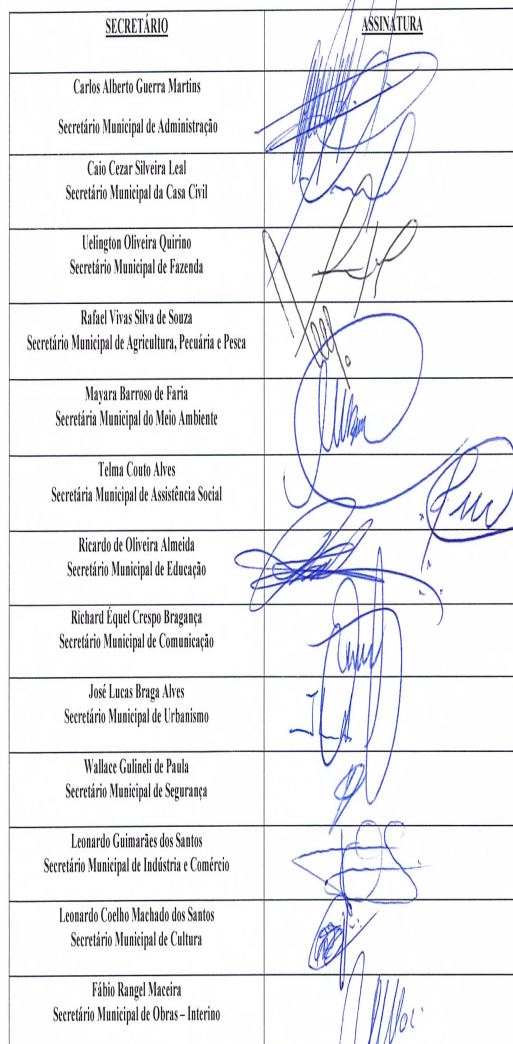 SECRETÁRIO
ASSINATURA
Carlos Alberto Guerra Martins
Secretário Municipal de Administração
Caio Cezar Silveira Leal
Secretário Municipal da Casa Civil
Uelington Oliveira Quirino
Secretário Municipal de Fazenda
Rafael Vivas Silva de Souza
Secretário Municipal de Agricultura, Pecuária e Pesca
Mayara Barroso de Faria
Secretária Municipal do Meio Ambiente
Telma Couto Alves
Secretária Municipal de Assistência Social
Ricardo de Oliveira Almeida
Secretário Municipal de Educação
Richard Équel Crespo Bragança
Secretário Municipal de Comunicação
José Lucas Braga Alves
Secretário Municipal de Urbanismo
Wallace Gulineli de Paula
Secretário Municipal de Segurança
Leonardo Guimarães dos Santos
Secretário Municipal de Indústria e Comércio
Leonardo Coelho Machado dos Santos
Secretário Municipal de Cultura
Fábio Rangel Maceira
Secretário Municipal de Obras – Interino